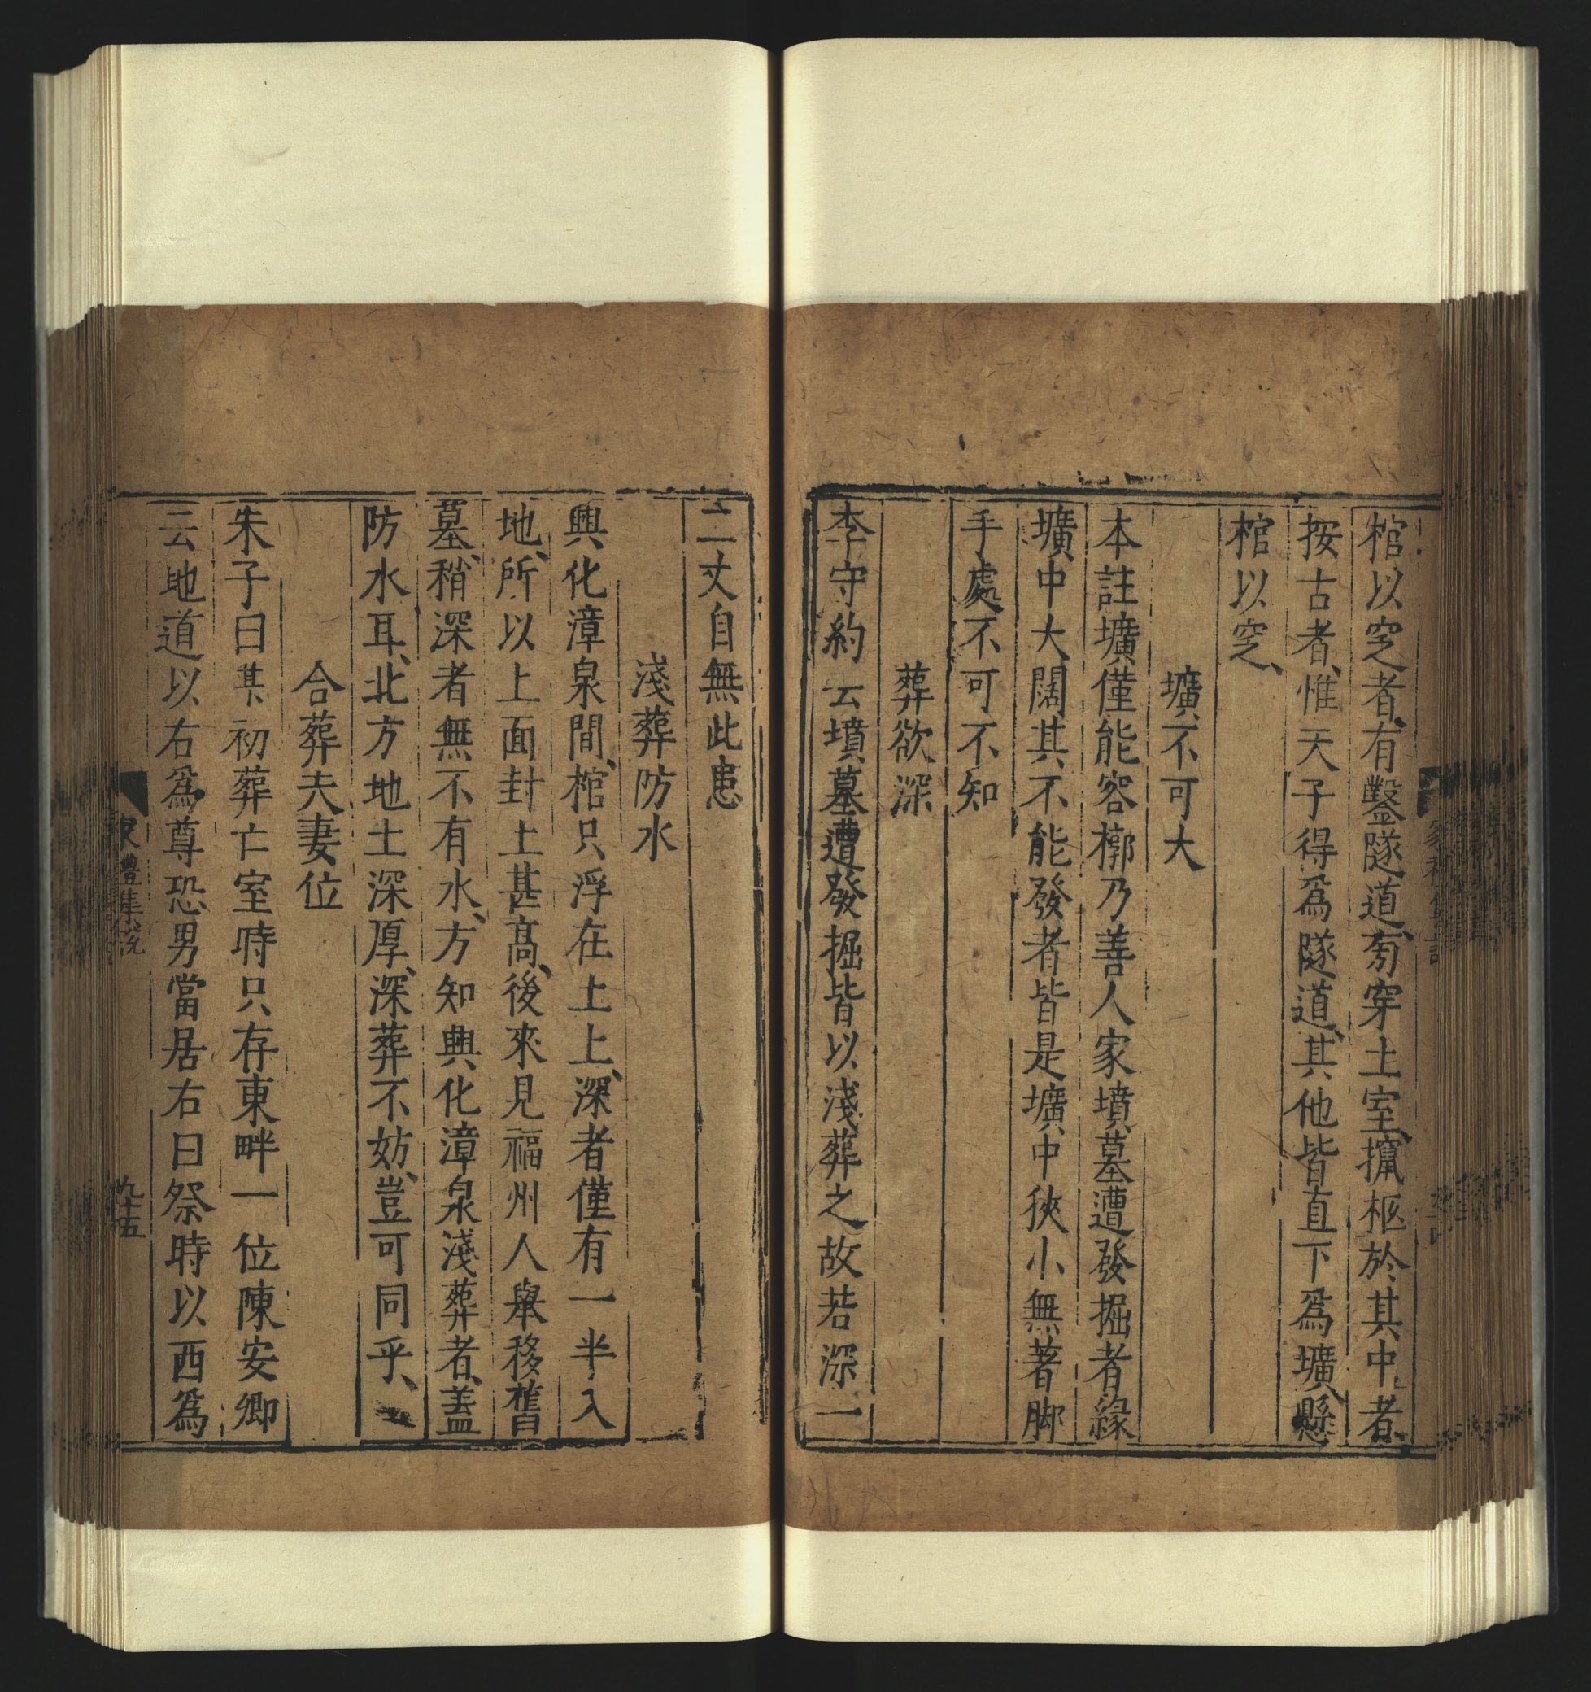 棺以窆者、有鑿隧道、旁穿土室、攛柩於其中者、
按古者、惟天子得爲隧道、其他皆直下爲壙、懸
棺以窆、
壙不可大
本註壙僅能容槨乃善人家墳墓遭發掘者緣
壙中大闊其不能發者皆是壙中狹小無著脚
手處不可不知
葬欲深
李守約云墳墓遭發掘皆以淺葬之故若深一
二丈自無此患
淺葬防水
興化漳泉間、棺只浮在土上、深者僅有一半入
地、所以上面封土甚高、後來見福州人舉移舊
墓、稍深者無不有水、方知興化漳泉淺葬者、蓋
防水耳、北方地土深厚、深葬不妨、豈可同乎、
合葬夫妻位
朱子曰某初葬亡室時只存東畔一位陳安卿
云地道以右爲尊恐男當居右曰祭時以西爲
家禮集說
九十五